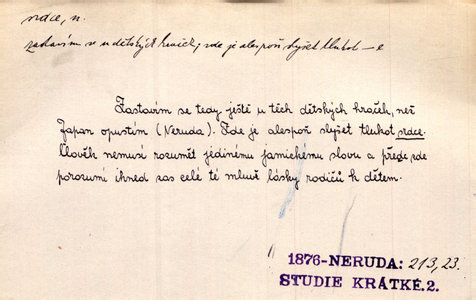 srdce, n.
zastavím se u dětských hraček, zde je alespoň slyšet tlukot –e
Zastavím se tedy ještě u těch dětských hraček, než
Japan opustím (Neruda). Zde je alespoň slyšet tlukot srdce.
Člověk nemusí rozumět jedinému jamickému slovu a přede zde
porozumí ihned zas celé té mluvě lásky rodičů k dětem.
1876-NERUDA: 213,23.
STUDIE KRÁTKÉ.2.